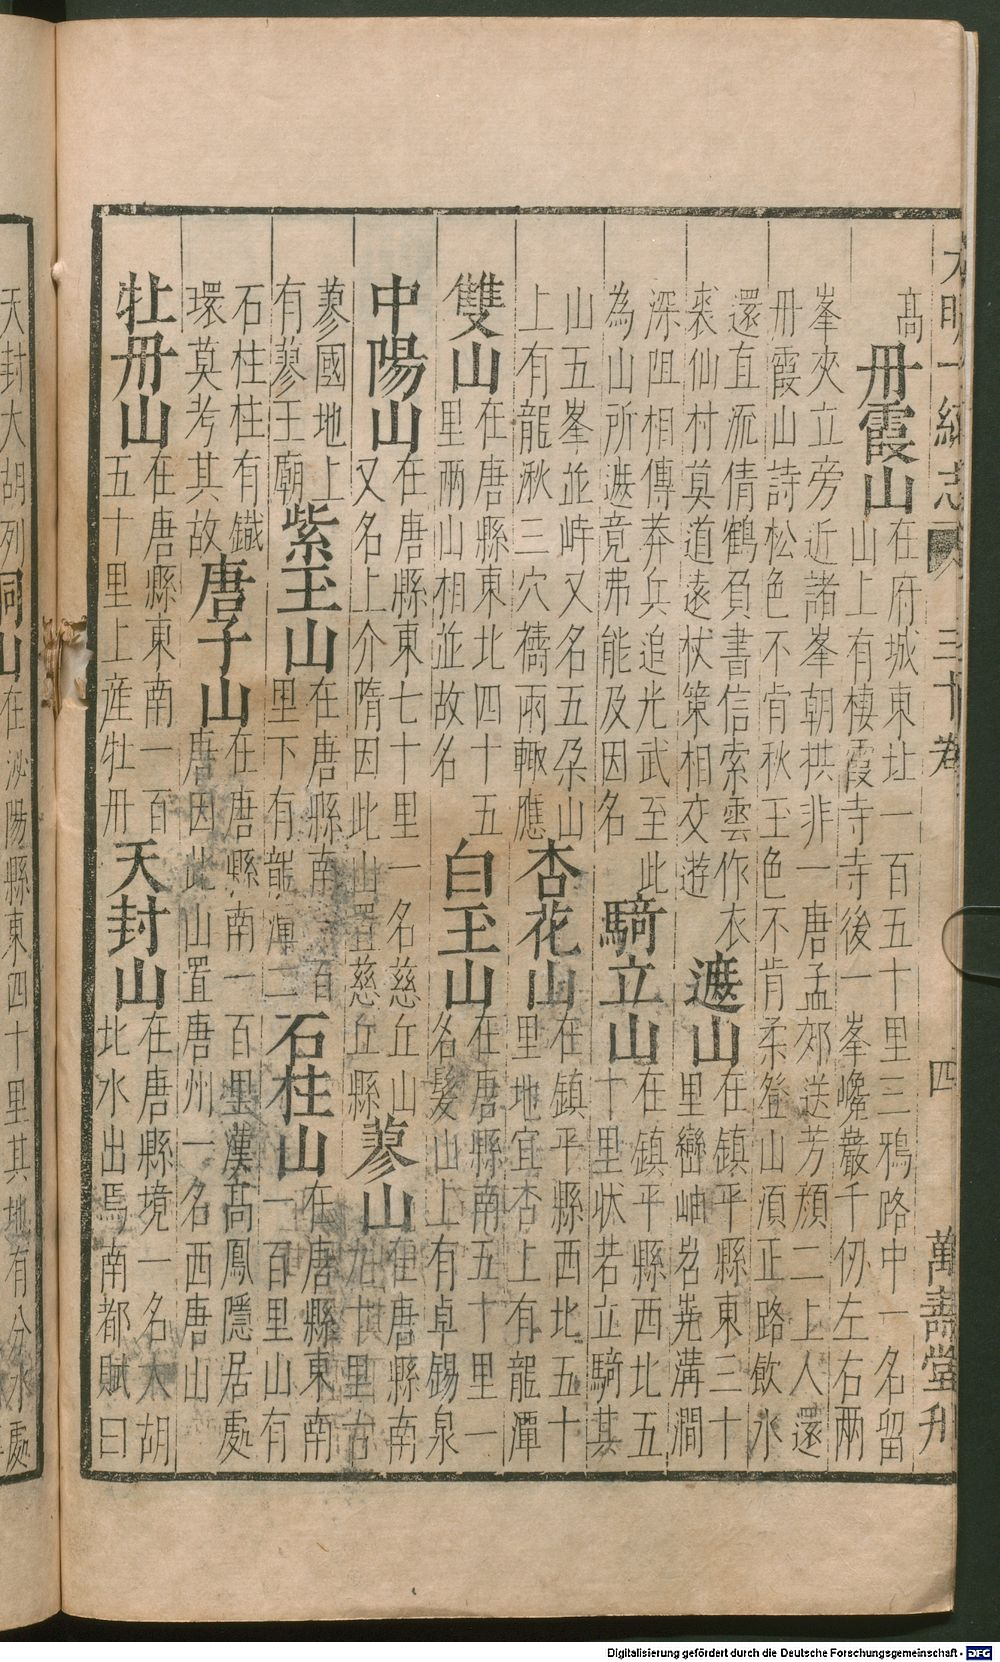 大明一統志 三十卷 四 萬壽堂刊
高
丹霞山
在府城東北一百五十里三鴉路中一名留
山上有棲霞寺寺後一峯巉巖千仞左右兩
峯夾立旁近諸峯朝拱非一唐孟郊送芳顏二上人還
丹霞山詩松色不肯秋玉色不肯柔登山須正路飲水
還直流倩鶴負書信索雲作衣
裘仙村莫道遠杖策相交遊
遮山
在鎮平縣東三十
里巒岫岧嶤溝澗
深阻相傳莽兵追光武至此
為山所遮竟弗能及因名
騎立山
在鎮平縣西北五
十里狀若立騎其
山五峯並峙又名五朵山
上有龍湫三穴禱雨輒應
杏花山
在鎮平縣西北五十
里地宜杏上有龍潭
雙山
在唐縣東北四十五
里兩山相並故名
白玉山
在唐縣南五十里一
名髮山上有卓錫泉
中陽山
在唐縣東七十里一名慈丘山
又名上介隋因此山置慈丘縣
蓼山
在唐縣南
九十里古
蓼國地上
有蓼王廟
紫玉山
在唐縣南一百
里下有龍潭二
石柱山
在唐縣東南
一百里山有
石柱柱有鐵
環莫考其故
唐子山
在唐縣南一百里漢高鳳隱居處
唐因此山置唐州一名西唐山
牡丹山
在唐縣東南一百
五十里上産牡丹
天封山
在唐縣境一名大胡
北水出焉南都賦曰
天封大胡列
山
在泌陽縣東四十里其地有分水處
Digitalisierung gefördert durch die Deutsche Forschungsgemeinschaft - DFG